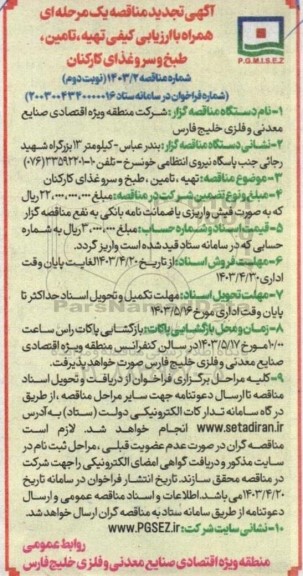 آگهی تجدید مناقصه یک مرحله ای
همراه با ارزیابی کیفی تهیه، تامین،
طبخ و سرو غذای کارکنان
P.G.M.I.S.E.Z
شماره مناقصه ۱۴۰۳/۲ (نوبت دوم)
(شماره فراخوان در سامانه ستاد ۲۰۰۳۰۰۴۳۴۰۰۰۰۰۱۶)
۱- نام دستگاه مناقصه گزار: شرکت منطقه ویژه اقتصادی صنایع
معدنی و فلزی خلیج فارس
۲- نشانی دستگاه مناقصه گزار: بندرعباس - کیلومتر ۱۳ بزرگراه شهید
رجائی جنب پاسگاه نیروی انتظامی خونسرخ - تلفن ۱۰-۳۳۵۹۲۲۰۱ (۰۷۶)
۳- موضوع مناقصه: تهیه، تامین، طبخ و سرو غذای کارکنان
۴- مبلغ و نوع تضمین شرکت در مناقصه: مبلغ ۲۲,۰۰۰,۰۰۰,۰۰۰ ریال
که به صورت فیش واریزی یا ضمانت نامه بانکی به نفع مناقصه گزار
۵- قیمت اسناد و شماره حساب: مبلغ ۳,۰۰۰,۰۰۰ ریال به شماره
حسابی که در سامانه ستاد قید شده است واریز گردد.
۶- مهلت فروش اسناد: از تاریخ ۱۴۰۳/۴/۲۰ لغایت پایان وقت
اداری ۱۴۰۳/۴/۳۰
۷- مهلت تحویل اسناد: مهلت تکمیل و تحویل اسناد حداکثر تا
پایان وقت اداری مورخ ۱۴۰۳/۵/۱۶
۸- زمان و محل بازگشایی پاکات: بازگشایی پاکات راس ساعت
۱۰/۰۰ مورخ ۱۴۰۳/۵/۱۷ در سالن کنفرانس منطقه ویژه اقتصادی
صنایع معدنی و فلزی خلیج فارس صورت خواهد پذیرفت.
۹- کلیه مراحل برگزاری فراخوان از دریافت و تحویل اسناد
مناقصه تا ارسال دعوتنامه جهت سایر مراحل مناقصه، از طریق
درگاه سامانه تدارکات الکترونیکی دولت (ستاد) به آدرس
www.setadiran.ir انجام خواهد شد. لازم است
مناقصه گران در صورت عدم عضویت قبلی، مراحل ثبت نام در
سایت مذکور و دریافت گواهی امضای الکترونیکی را جهت شرکت
در مناقصه محقق سازند. تاریخ انتشار فراخوان در سامانه تاریخ
۱۴۰۳/۴/۲۰ می باشد. اطلاعات و اسناد مناقصه عمومی و ارسال
دعوتنامه از طریق سامانه ستاد به مناقصه گران ارسال خواهد شد.
۱۰- نشانی سایت شرکت: www.PGSEZ.ir
روابط عمومی
منطقه ویژه اقتصادی صنایع معدنی و فلزی خلیج فارس